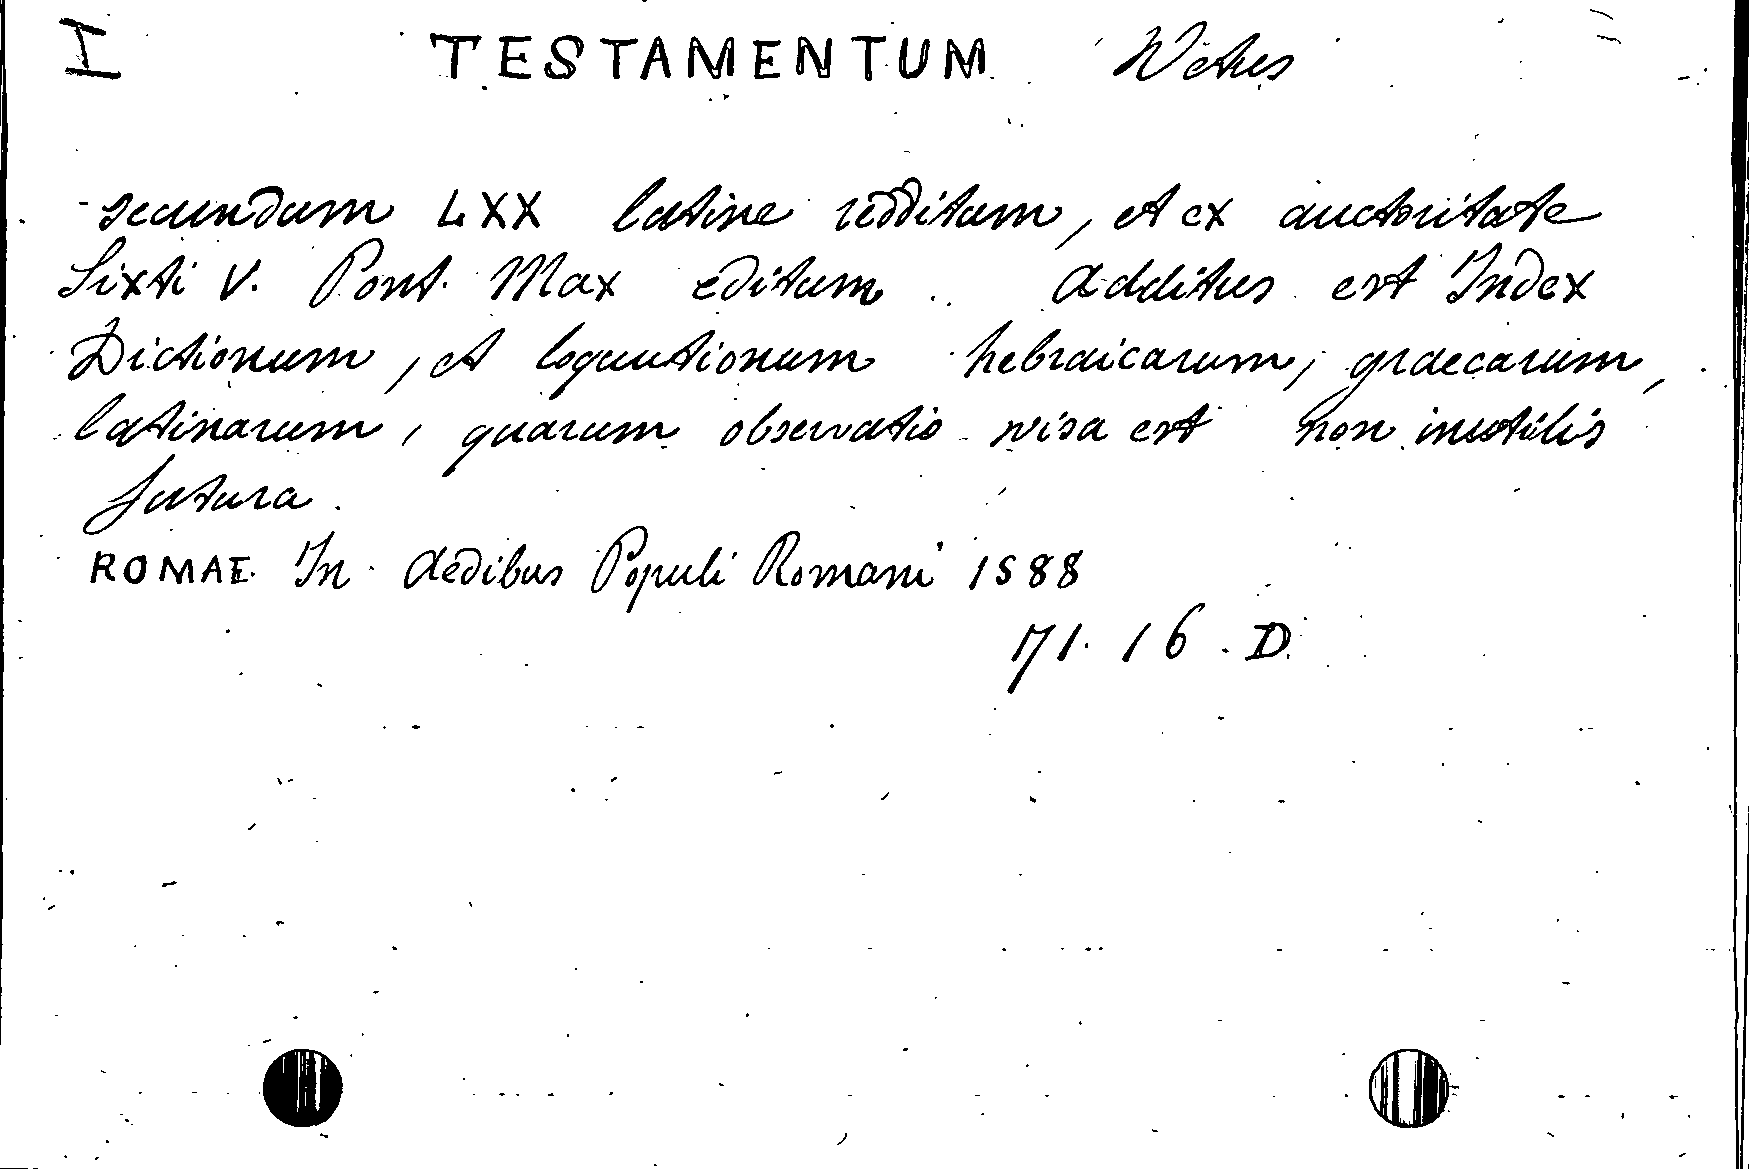 I TESTAMENTUM Vetus
secundum LXX latine redditum, et ex auctoritate
Sixti V. Pont. Max editum. Additus est Index
Dictionum, et loquutionum hebraicarum, graecarum,
latinarum, quarum observatio visa est non inutilis
futura.
ROMAE In Aedibus Populi Romani 1588
71. 16. D